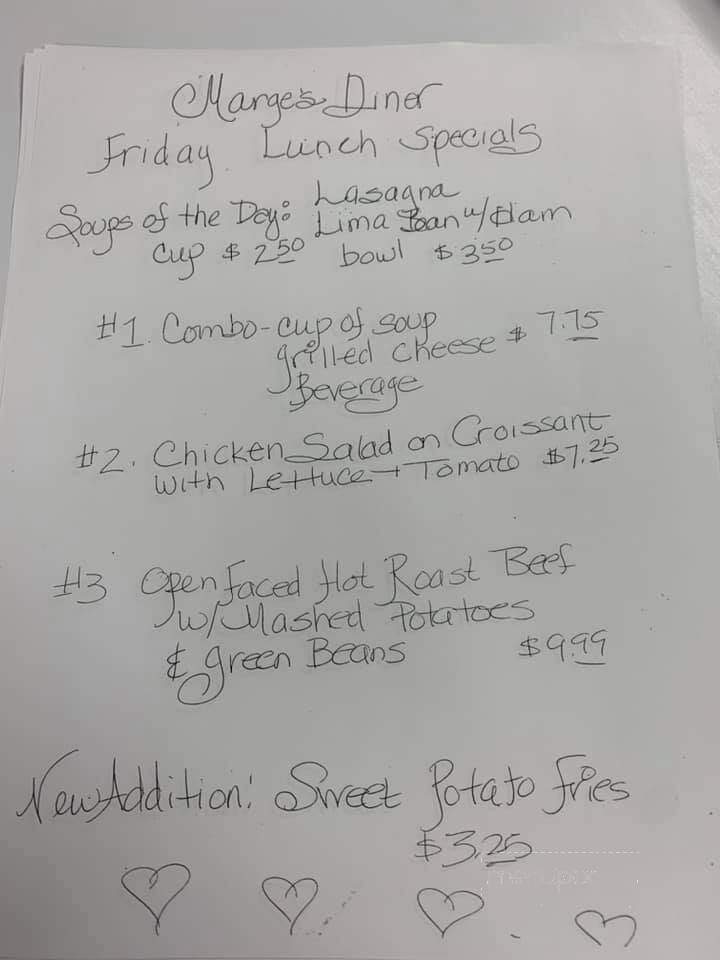 Marge's Diner
Friday Lunch Specials
Soups of the Day: Lasagna
Lima Bean w/ Ham
cup $2.50 bowl $3.50
#1. Combo - cup of soup
grilled cheese $7.75
Beverage
#2. Chicken Salad on Croissant
with Lettuce + Tomato $7.25
#3 Open faced Hot Roast Beef
w/ Mashed Potatoes
& green Beans $9.99
New Addition: Sweet Potato fries
$3.25
menupix